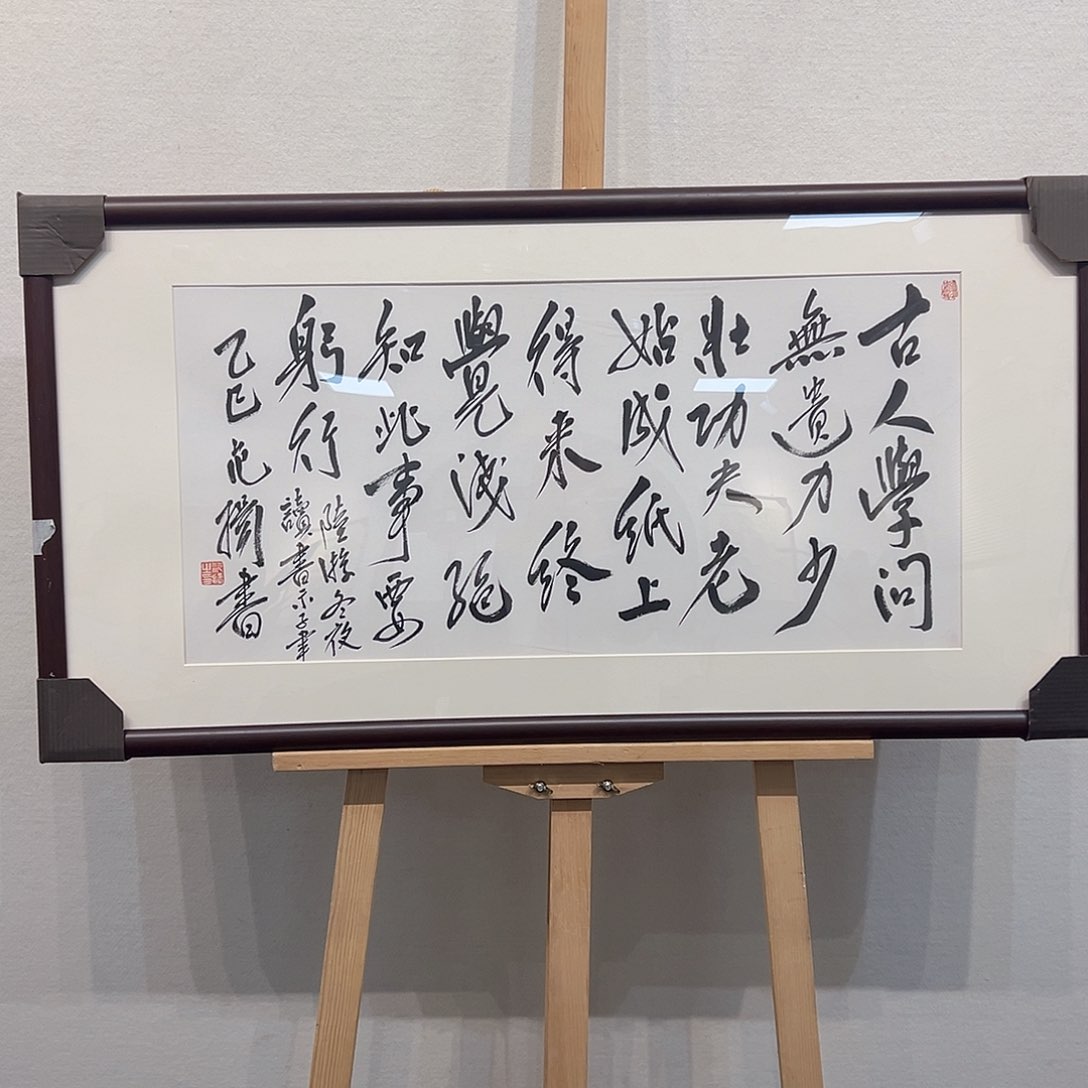 古人學问
無遺力少
壯功夫老
始成紙上
得来終
覺淺絕
知此事要
躬行
陸游冬夜
讀書示子聿
乙巳
書